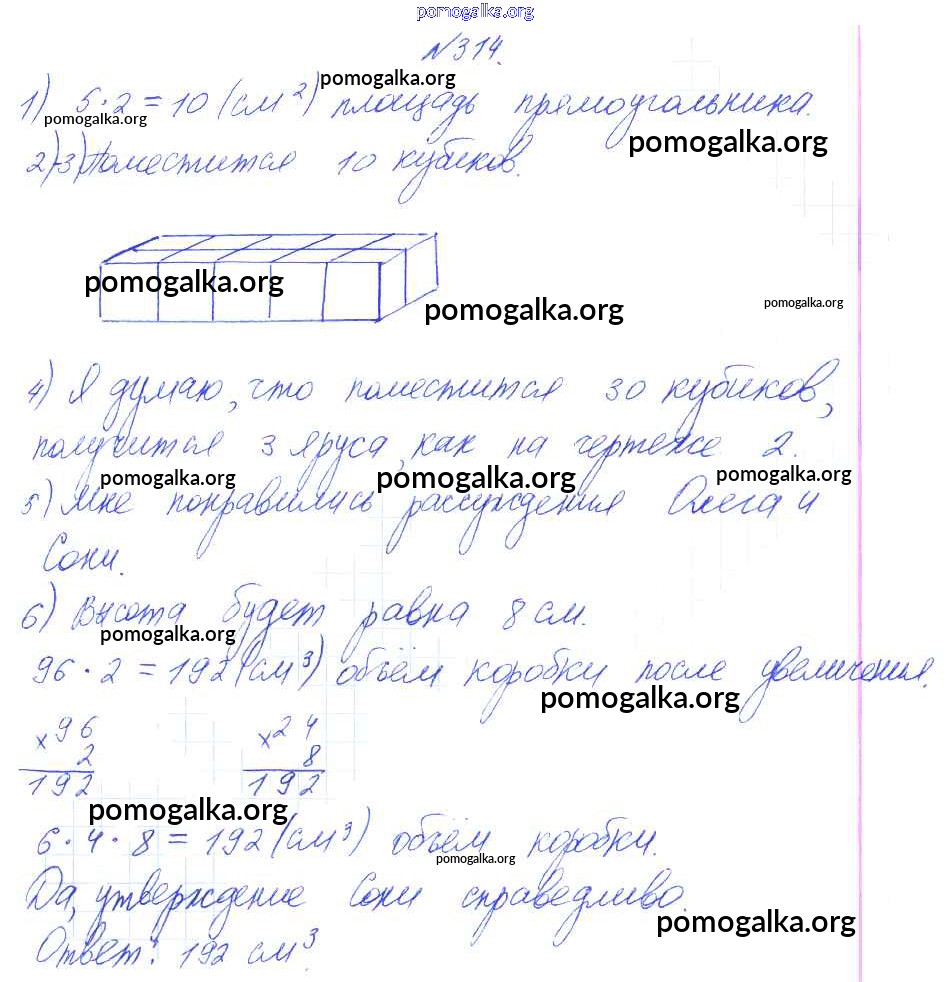 pomogalka.org
№314.
pomogalka.org
1) 5·2=10 (см²) площадь прямоугольника.
pomogalka.org
pomogalka.org
2)-3) Поместится 10 кубиков.
pomogalka.org
pomogalka.org
pomogalka.org
4) Я думаю, что поместится 30 кубиков,
получится 3 яруса, как на чертеже 2.
pomogalka.org pomogalka.org pomogalka.org
5) Мне понравились рассуждения Олега и
Сони.
6) Высота будет равна 8 см.
pomogalka.org
96·2=192(см³) объём коробки после увеличения.
pomogalka.org
×96 ×24
2 8
192 192
pomogalka.org
6·4·8=192(см³) объём коробки.
pomogalka.org
Да, утверждение Сони справедливо.
pomogalka.org
Ответ: 192 см³.